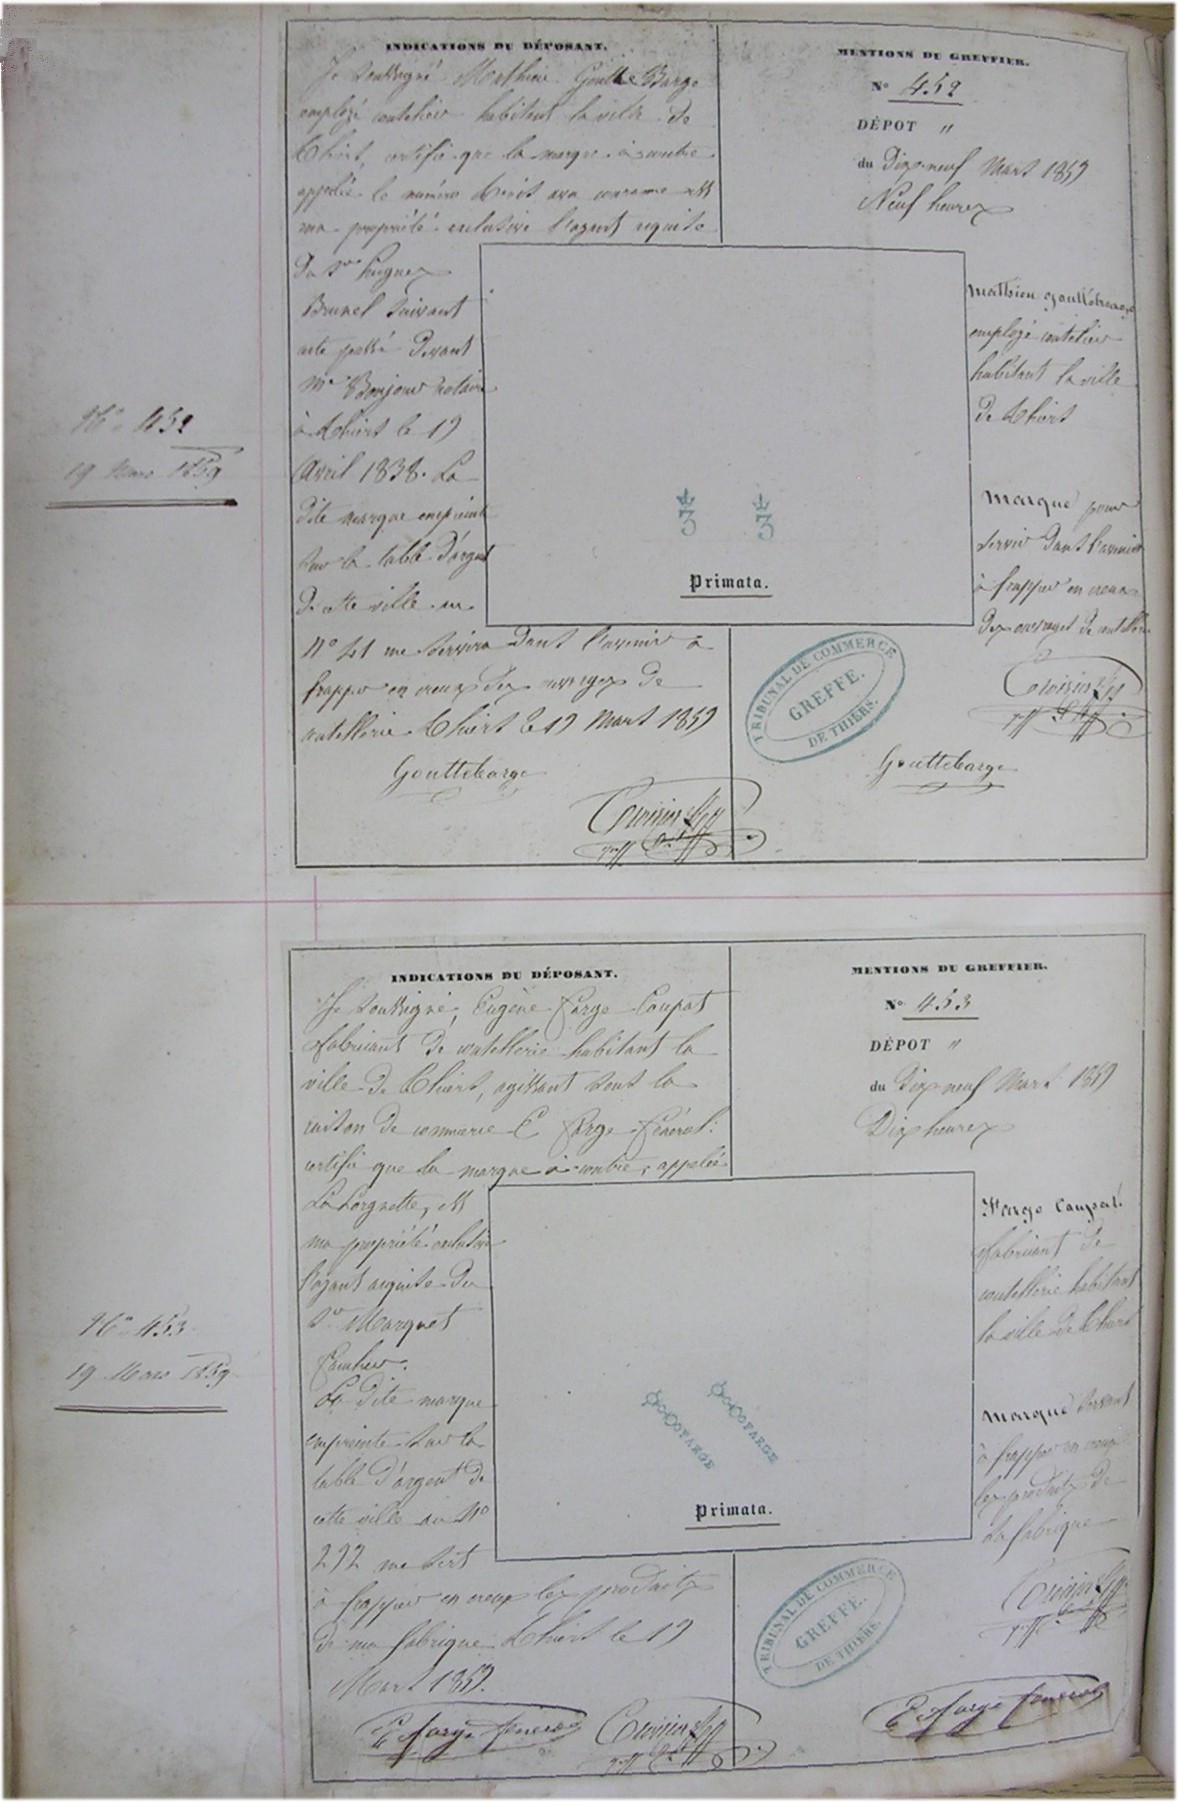 INDICATIONS DU DÉPOSANT.
Je soussigné Mathieu Goutte Barge
employé coutelier habitant la ville de
Thiers, certifie que la marque ci contre
appelée le numéro trois est
ma propriété exclusive l'ayant
du Sr hugues
Brunel suivant
acte passé devant
Me Bonjour notaire
à Thiers le 19
Avril 1838. La
dite marque empreinte
sur la table d'argent
de cette ville au
N° 41 me servira dans l'avenir à
frapper en creux des ouvrages de
coutellerie Thiers le 19 Mars 1859
Gouttebarge
MENTIONS DU GREFFIER.
N° 452
DÉPOT "
du Dix-neuf Mars 1859
Neuf heures
Mathieu Gouttebarge
employé coutelier
habitant la ville
de Thiers
Marque pour
servir dans l'avenir
à frapper en creux
des ouvrages de coutellerie
3
3
Primata.
TRIBUNAL DE COMMERCE
GREFFE.
DE THIERS.
Gouttebarge
N° 452
19 Mars 1859
INDICATIONS DU DÉPOSANT.
Je soussigné, Eugène Farge Coupat
fabricant de coutellerie habitant la
ville de Thiers, agissant sous la
raison de commerce E Farge Fénérol:
certifie que la marque ci-contre, appelée
La Lorgnette, est
ma propriété exclusive
l'ayant acquise du
Sr Marquet
La dite marque
empreinte sur la
table d'argent de
cette ville au N°
292 me sert
à frapper en creux les produits
de ma fabrique Thiers le 19
Mars 1859.
E Farge Fénérol
MENTIONS DU GREFFIER.
N° 453
DÉPOT "
du Dix-neuf Mars 1859
Dix heures
Farge Coupat
fabricant de
coutellerie habitant
la ville de Thiers
Marque servant
à frapper en creux
les produits de
sa fabrique
FARGE
FARGE
Primata.
TRIBUNAL DE COMMERCE
GREFFE.
DE THIERS.
E Farge Fénérol
N° 453
19 Mars 1859